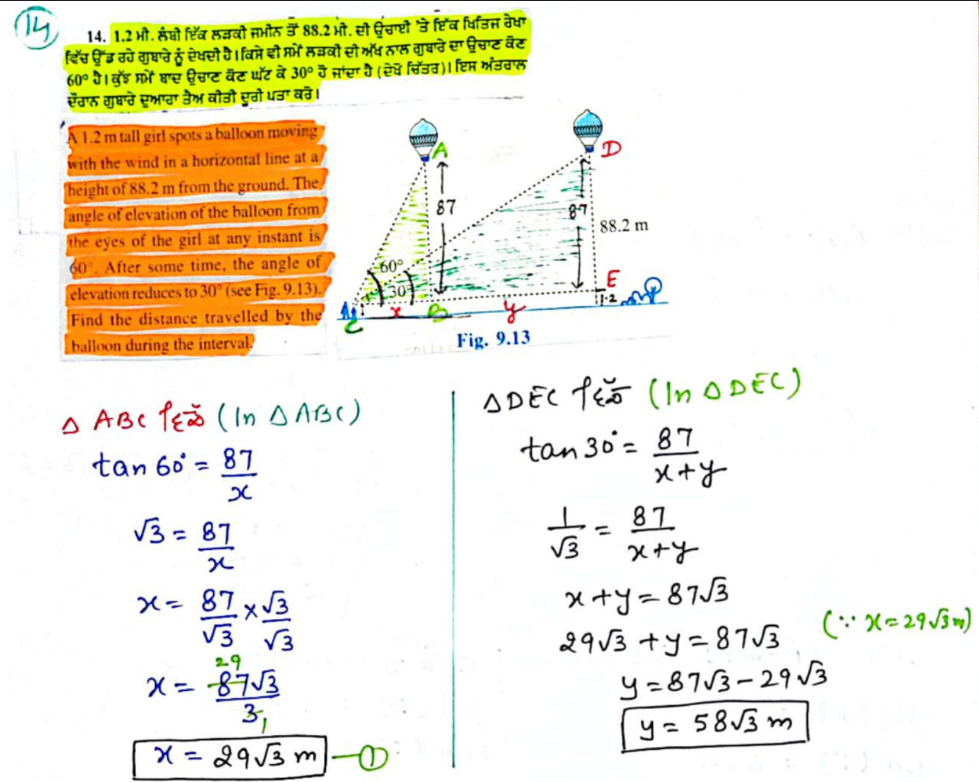 14
14. 1.2 ਮੀ. ਲੰਬੀ ਇੱਕ ਲੜਕੀ ਜਮੀਨ ਤੋਂ 88.2 ਮੀ. ਦੀ ਉਚਾਈ 'ਤੇ ਇੱਕ ਖਿਤਿਜ ਰੇਖਾ
ਵਿੱਚ ਉੱਡ ਰਹੇ ਗੁਬਾਰੇ ਨੂੰ ਦੇਖਦੀ ਹੈ। ਕਿਸੇ ਵੀ ਸਮੇਂ ਲੜਕੀ ਦੀ ਅੱਖ ਨਾਲ ਗੁਬਾਰੇ ਦਾ ਉਚਾਣ ਕੋਣ
60° ਹੈ। ਕੁੱਝ ਸਮੇਂ ਬਾਦ ਉਚਾਣ ਕੋਣ ਘੱਟ ਕੇ 30° ਹੋ ਜਾਂਦਾ ਹੈ (ਦੇਖੋ ਚਿੱਤਰ)। ਇਸ ਅੰਤਰਾਲ
ਦੌਰਾਨ ਗੁਬਾਰੇ ਦੁਆਰਾ ਤੈਅ ਕੀਤੀ ਦੂਰੀ ਪਤਾ ਕਰੋ।
A 1.2 m tall girl spots a balloon moving
with the wind in a horizontal line at a
height of 88.2 m from the ground. The
angle of elevation of the balloon from
the eyes of the girl at any instant is
60°. After some time, the angle of
elevation reduces to 30° (see Fig. 9.13).
Find the distance travelled by the
balloon during the interval.
A
D
87
87
88.2 m
60°
30°
E
1.2
C
x
B
y
Fig. 9.13
Δ ABC ਵਿੱਚੋਂ (In Δ ABC)
tan 60° = 87/x
√3 = 87/x
x = 87/√3 × √3/√3
29
x = 87√3/3
1
x = 29√3 m —①
Δ DEC ਵਿੱਚੋਂ (In Δ DEC)
tan 30° = 87/x+y
1/√3 = 87/x+y
x + y = 87√3
29√3 + y = 87√3 (∵ x = 29√3 m)
y = 87√3 − 29√3
y = 58√3 m